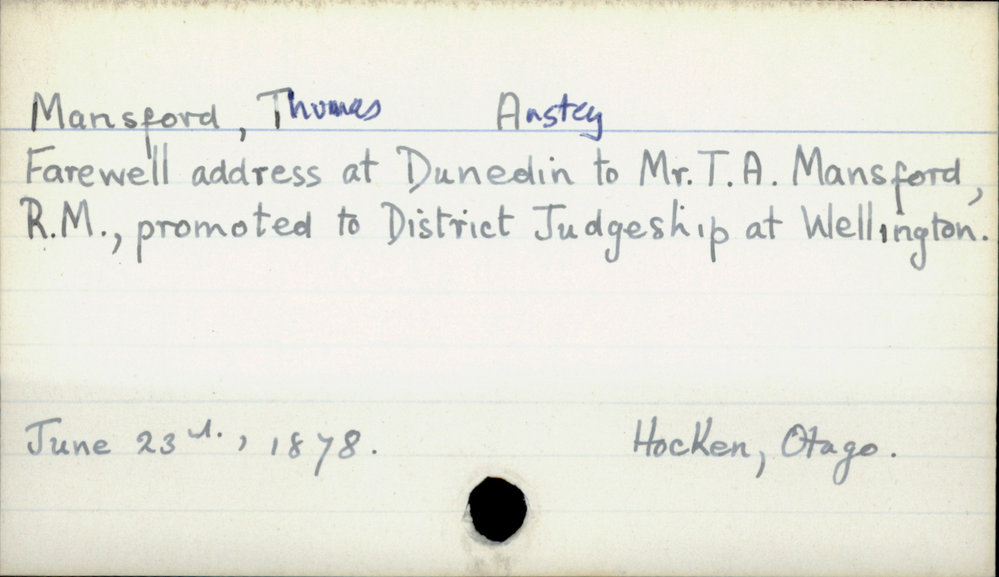 Mansford, Thomas Anstey
Farewell address at Dunedin to Mr. T. A. Mansford,
R.M., promoted to District Judgeship at Wellington.
June 23rd., 1878. Hocken, Otago.